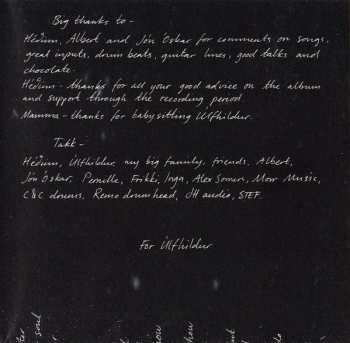 Big thanks to -
Héðinn, Albert and Jón Óskar for comments on songs,
great inputs, drum beats, guitar lines, good talks and
chocolate.
Héðinn - thanks for all your good advice on the album
and support through the recording period.
Mamma - thanks for babysitting Úlfhildur.
Takk -
Héðinn, Úlfhildur my big family, friends, Albert,
Jón Óskar, Pernille, Frikki, Inga, Alex Somers, Morr Music,
C&C drums, Remo drumhead, JH audio, STEF.
For Úlfhildur
soul
now
how